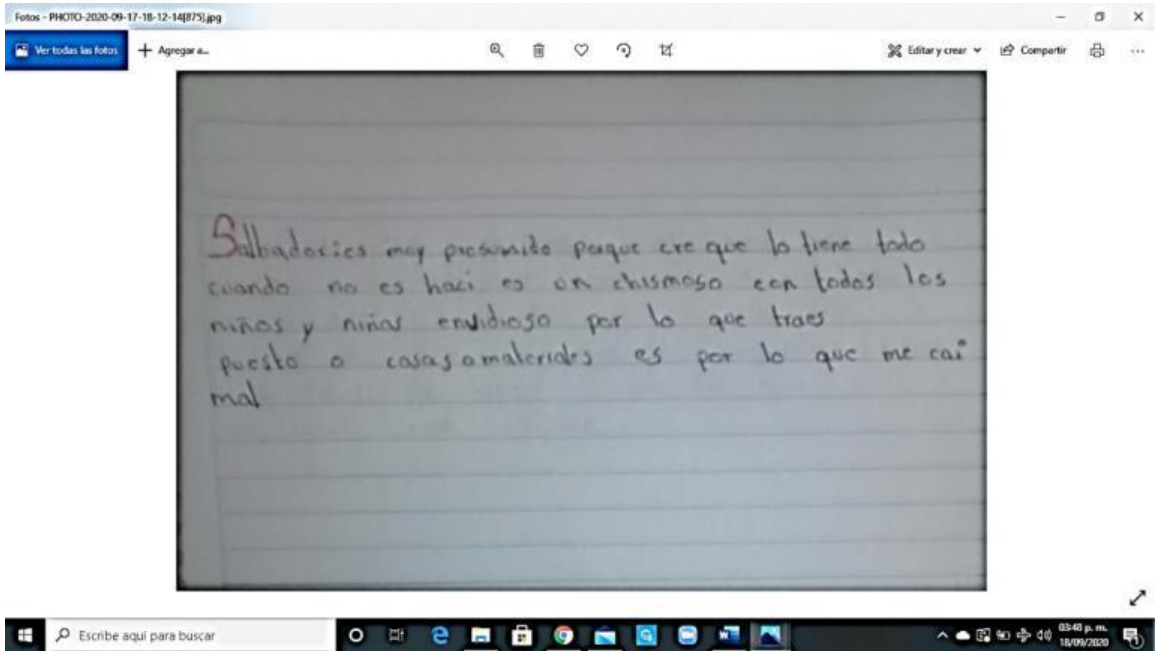 Fotos - PHOTO-2020-09-17-18-12-14[875].jpg
Ver todas las fotos + Agregar a... Editar y crear Compartir
Salbador:es muy presumido porque cre que lo tiene todo
cuando no es haci es un chismoso con todos los
niños y niñas envidioso por lo que traes
puesto o casas o materiales es por lo que me cai
mal
Escribe aquí para buscar
03:48 p. m.
18/09/2020